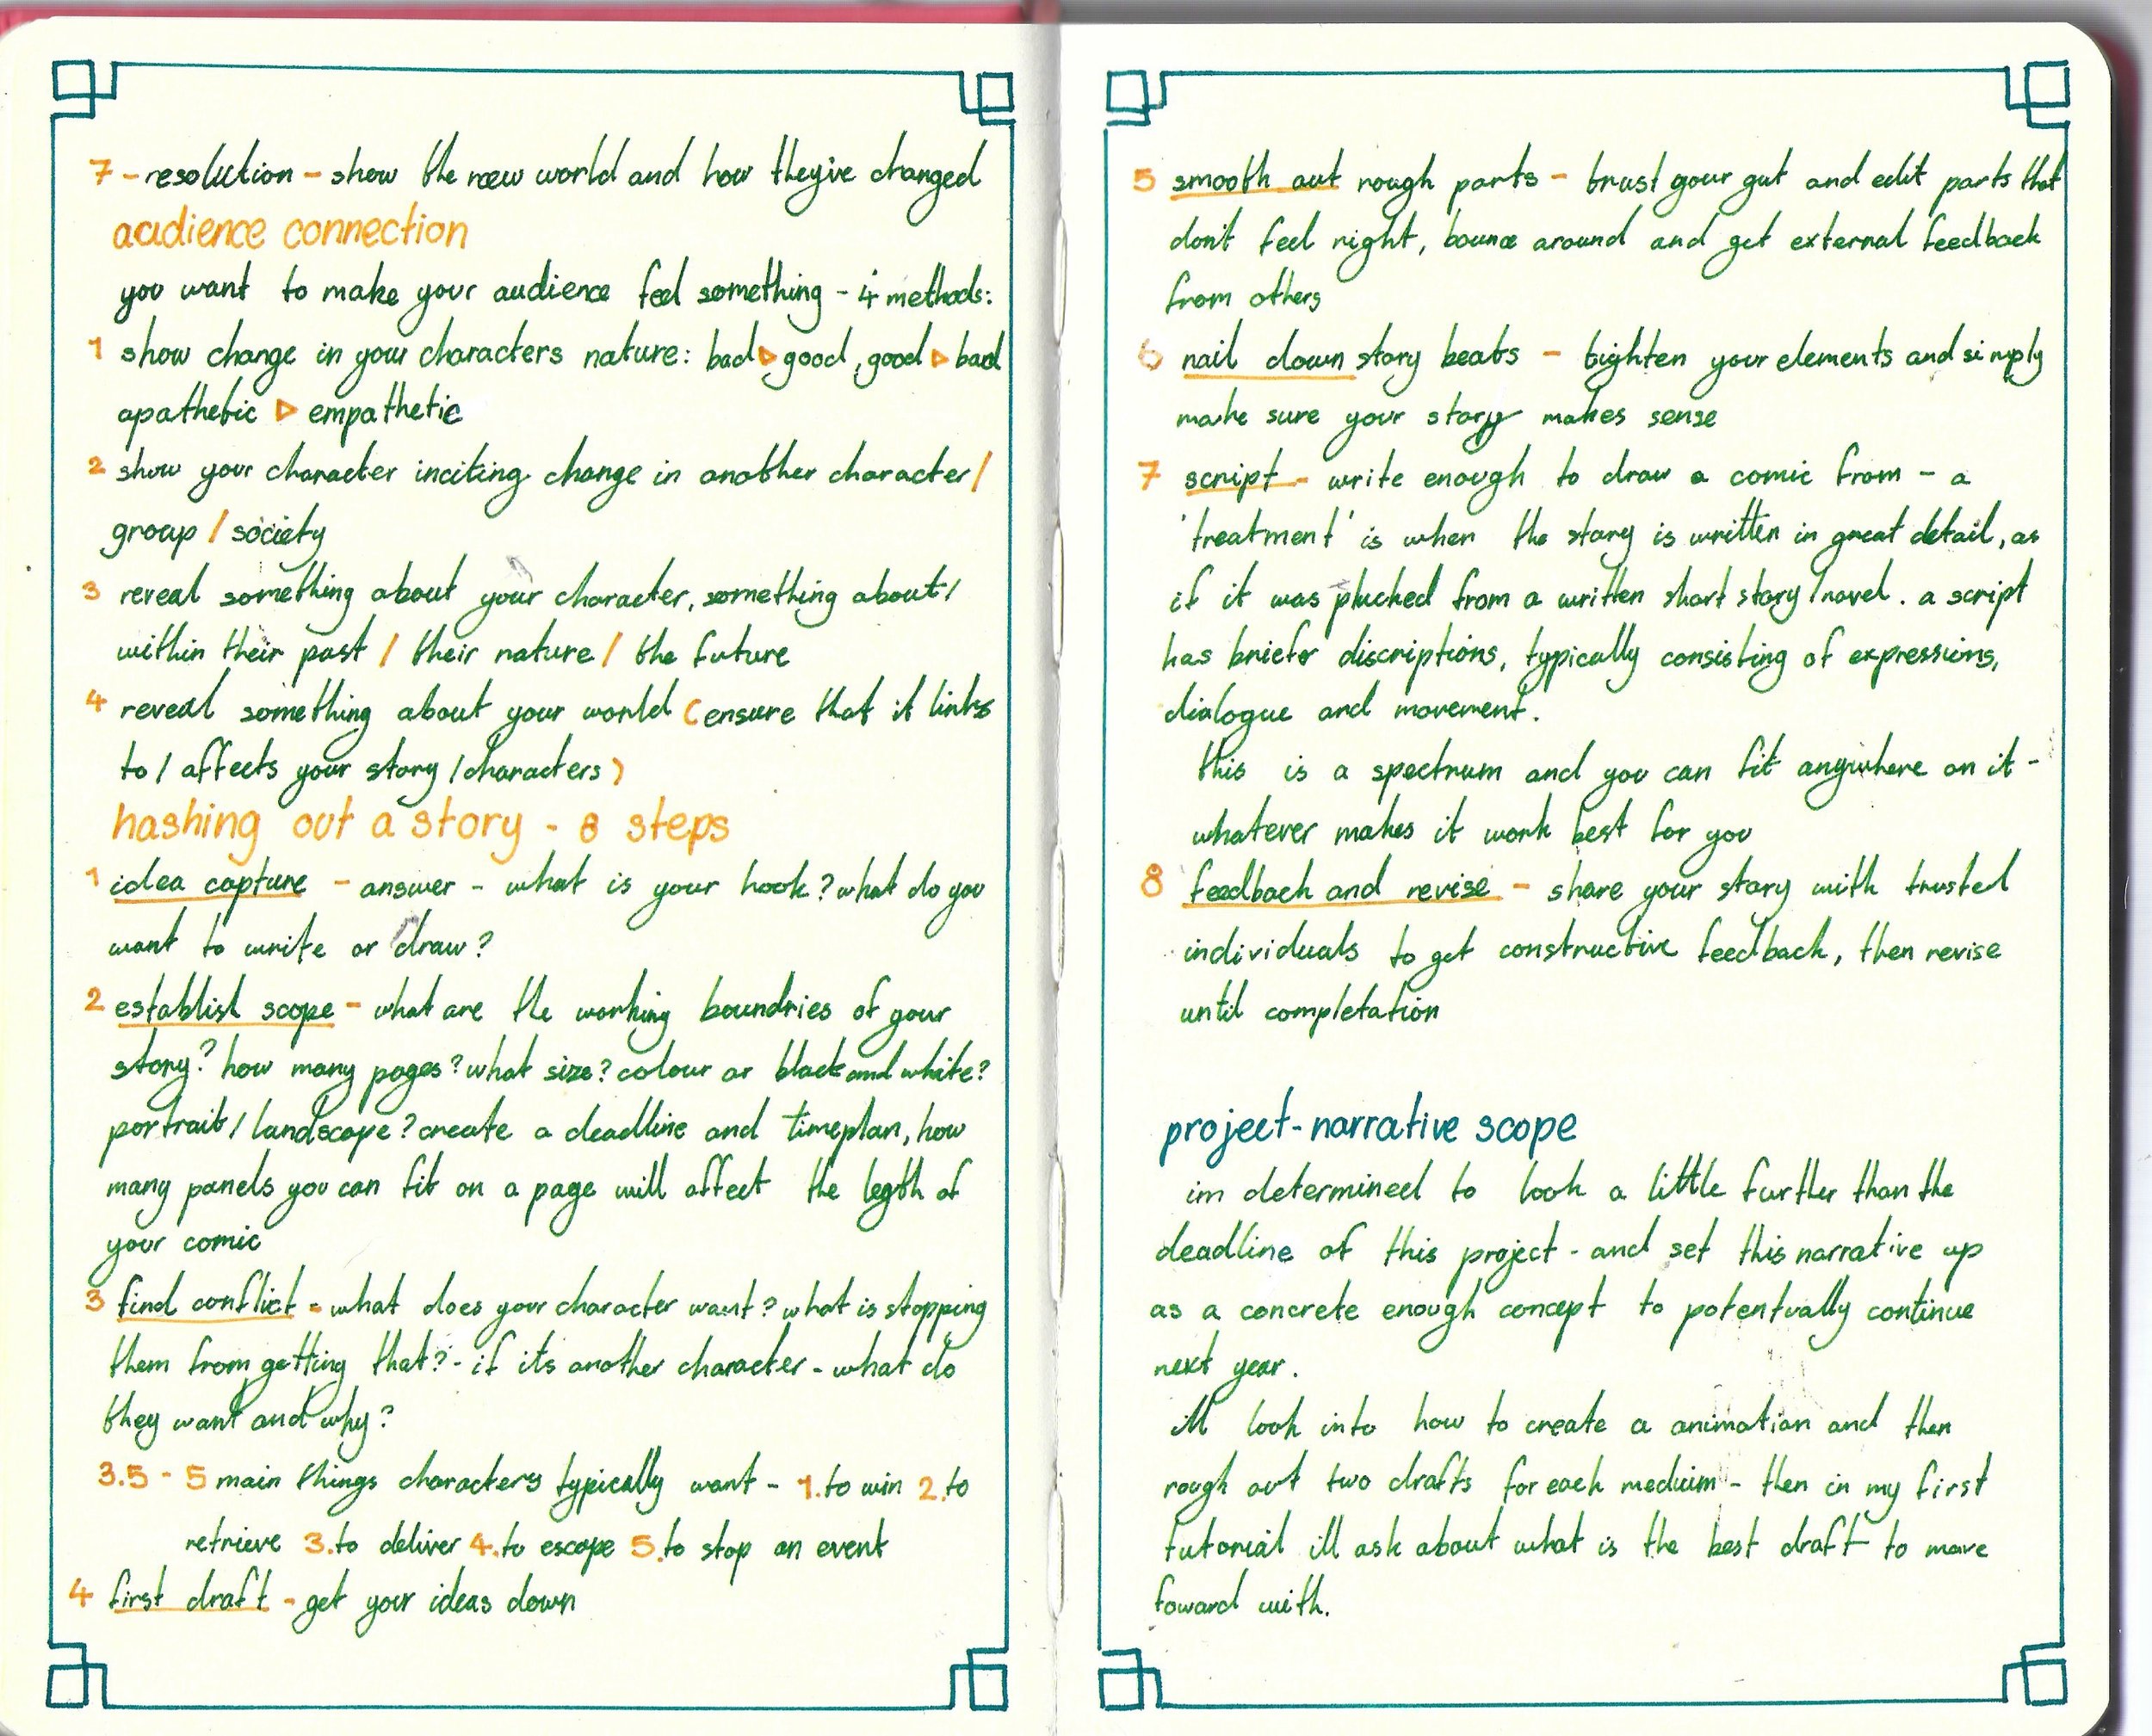 7 - resolution - show the new world and how they've changed
audience connection
you want to make your audience feel something - 4 methods:
1 show change in your characters nature: bad ▷ good, good ▷ bad
apathetic ▷ empathetic
2 show your character inciting change in another character /
group / society
3 reveal something about your character, something about /
within their past / their nature / the future
4 reveal something about your world (ensure that it links
to / affects your story / characters)
hashing out a story - 8 steps
1 idea capture - answer - what is your hook? what do you
want to write or draw?
2 establish scope - what are the working boundries of your
story? how many pages? what size? colour or black and white?
portrait / landscape? create a deadline and timeplan, how
many panels you can fit on a page will affect the legth of
your comic
3 find conflict - what does your character want? what is stopping
them from getting that? - if its another character - what do
they want and why?
3.5 - 5 main things characters typically want - 1. to win 2. to
retrieve 3. to deliver 4. to escape 5. to stop an event
4 first draft - get your ideas down
5 smooth out rough parts - trust your gut and edit parts that
don't feel right, bounce around and get external feedback
from others
6 nail down story beats - tighten your elements and simply
make sure your story makes sense
7 script - write enough to draw a comic from - a
'treatment' is when the story is written in great detail, as
if it was plucked from a written short story / novel. a script
has briefer discriptions, typically consisting of expressions,
dialogue and movement.
this is a spectrum and you can fit anywhere on it -
whatever makes it work best for you
8 feedback and revise - share your story with trusted
individuals to get constructive feedback, then revise
until completation
project - narrative scope
im determined to look a little further than the
deadline of this project - and set this narrative up
as a concrete enough concept to potentually continue
next year.
ill look into how to create a animation and then
rough out two drafts for each meduim - then in my first
tutorial ill ask about what is the best draft to move
foward with.